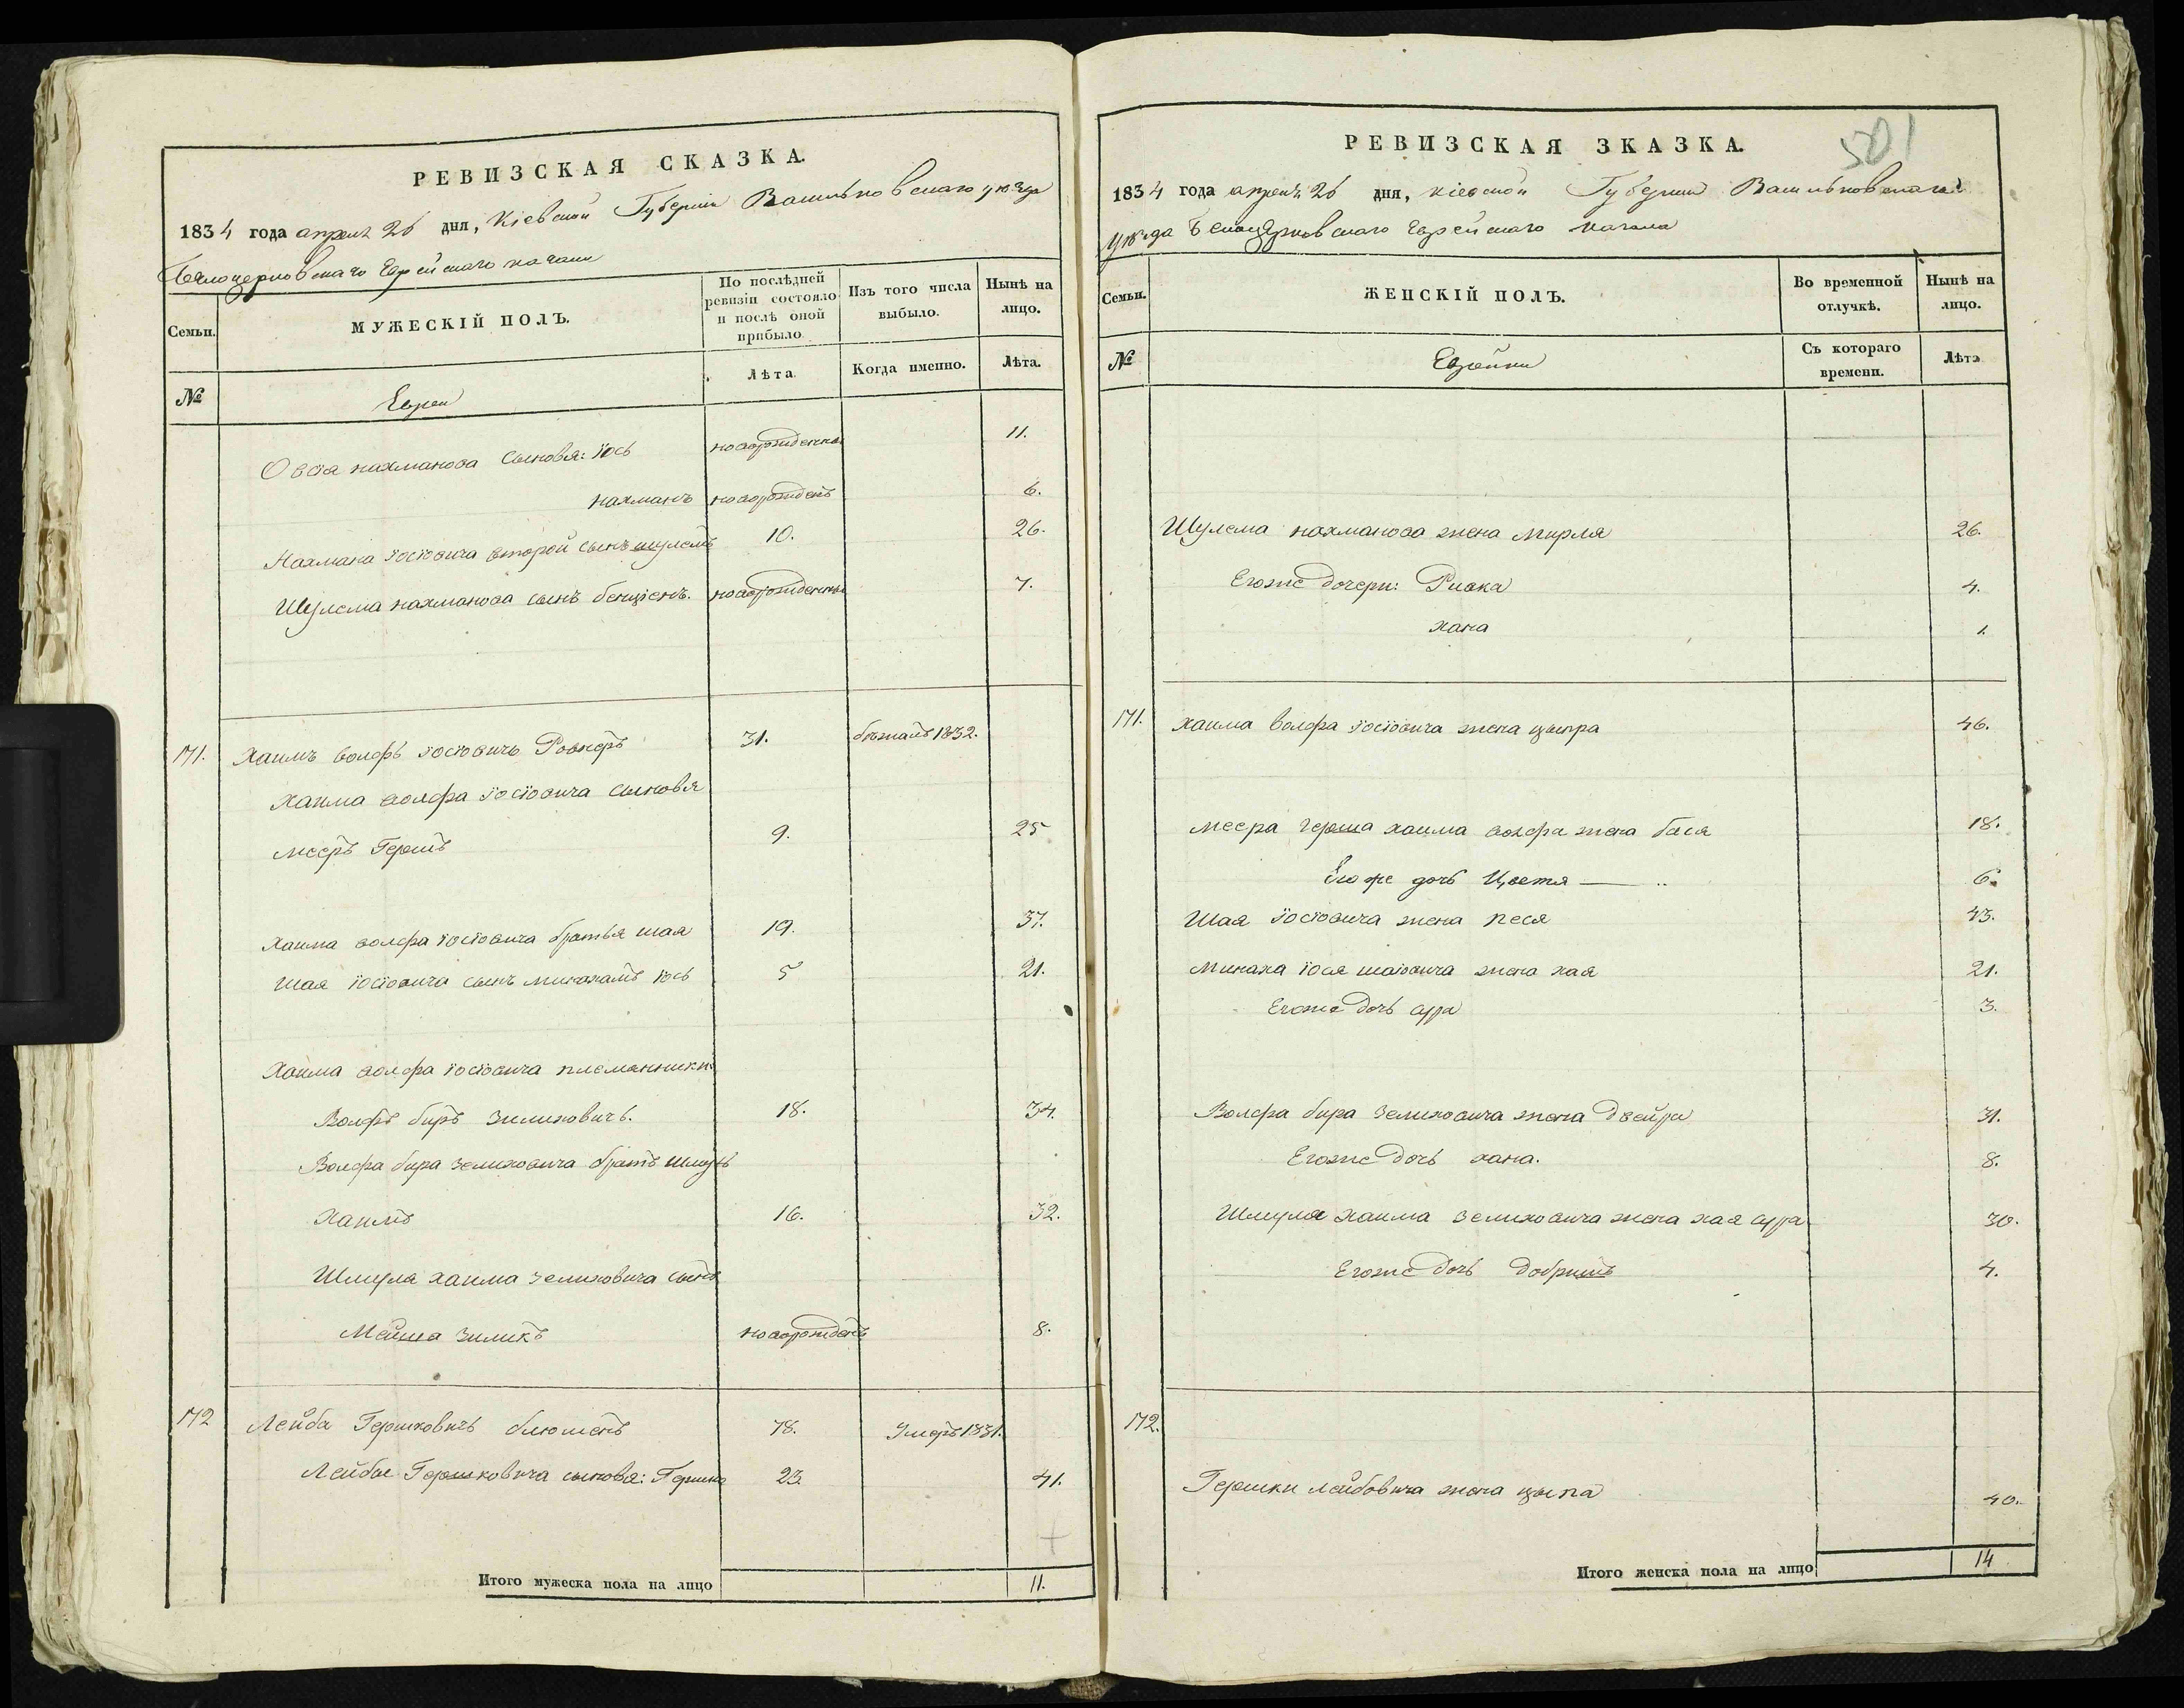 РЕВИЗСКАЯ СКАЗКА.
1834 года апреля 26 дня, Кіевской Губерніи Васильковскаго уезда
Белоцерковскаго Еврейскаго кагала
Семьи.
МУЖЕСКІЙ ПОЛЪ.
По послѣдней ревизіи состояло и послѣ оной прибыло.
Изъ того числа выбыло.
Нынѣ на лицо.
№
Евреи
Лѣта.
Когда именно.
Лѣта.
Овсія нахманова сыновья: іось новорожденны 11.
нахманъ новорожденъ 6.
Нахмана іосіовича второй сынъ шулемъ 10. 26.
Шулема нахманова сынъ бенціенъ. новорожденны 7.
171. Хаимъ волфъ іосіовичъ Ровнеръ 31. бѣжалъ 1832.
Хаима волфа іосіовича сыновья
меер Гершъ 9. 25
Хаима волфа іосіовича братья шая 19. 37.
Шая іосіовича сынъ минахамъ іось 5 21.
Хаима волфа іосіовича племянники:
Волфъ биръ зилиховичъ. 18. 34.
Волфа бира зелиховича братъ шмуль
Хаимъ 16. 32.
Шмуля хаима зелиховича сынъ
Мойша зиликъ новорожденъ 8.
172 Лейба Гершковичъ блюменъ 78. Умеръ 1831.
Лейбы Гершковича сыновья: Гершко 23 41.
Итого мужеска пола на лицо 11.
501
РЕВИЗСКАЯ ЗКАЗКА.
1834 года апреля 26 дня, кіевской Губерніи Васильковскаго
уезда Белоцерковскаго Еврейскаго кагала
Семьи.
ЖЕНСКІЙ ПОЛЪ.
Во временной отлучкѣ.
Нынѣ на лицо.
№
Еврейки
Съ котораго времени.
Лѣта
Шулема нахманова жена мирля 26.
Егоже дочери: Ривка 4.
хана 1.
171. хаима волфа іосіовича жена ципра 46.
меера герша хаима волфа жена бася 18.
Его же дочь Цветя 6.
Шая іосіовича жена песя 43.
Минаха іося шаіовича жена хая 21.
Егоже дочь сура 3.
Волфа бира зелиховича жена двейра 31.
Егоже дочь хана. 8.
Шмуля хаима зелиховича жена хая сура 30.
Егоже дочь добришъ 4.
172.
Гершки лейбовича жена ципа 40.
Итого женска пола на лицо 14